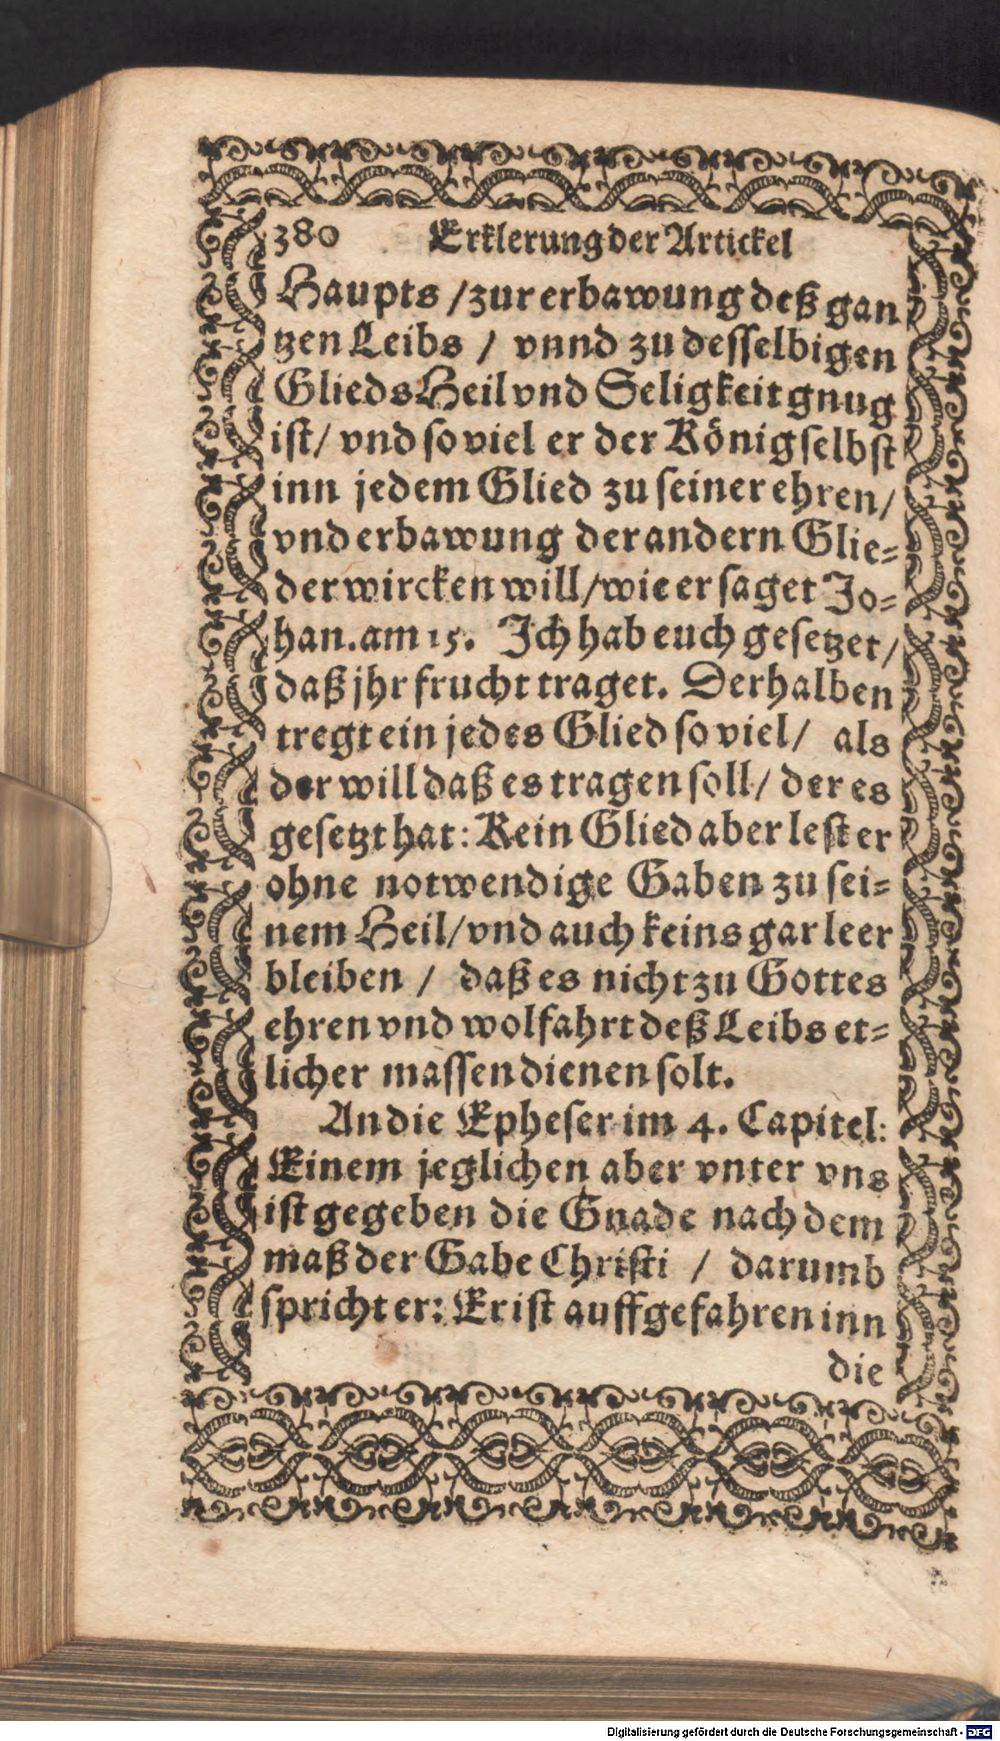 380 Erklerung der Artickel
Haupts / zur erbawung deß gan
tzen Leibs / vnnd zu desselbigen
Glieds Heil vnd Seligkeit gnug
ist / vnd so viel er der König selbst
inn jedem Glied zu seiner ehren /
vnd erbawung der andern Glie-
der wircken will / wie er saget Jo-
han. am 15. Ich hab euch gesetzet /
daß jhr frucht traget. Derhalben
tregt ein jedes Glied so viel / als
der will daß es tragen soll / der es
gesetzt hat: Kein Glied aber lest er
ohne notwendige Gaben zu sei-
nem Heil / vnd auch keins gar leer
bleiben / daß es nicht zu Gottes
ehren vnd wolfahrt deß Leibs et-
licher massen dienen solt.
An die Epheser im 4. Capitel:
Einem jeglichen aber vnter vns
ist gegeben die Gnade nach dem
maß der Gabe Christi / darumb
spricht er: Er ist auffgefahren inn
die
Digitalisierung gefördert durch die Deutsche Forschungsgemeinschaft - DFG